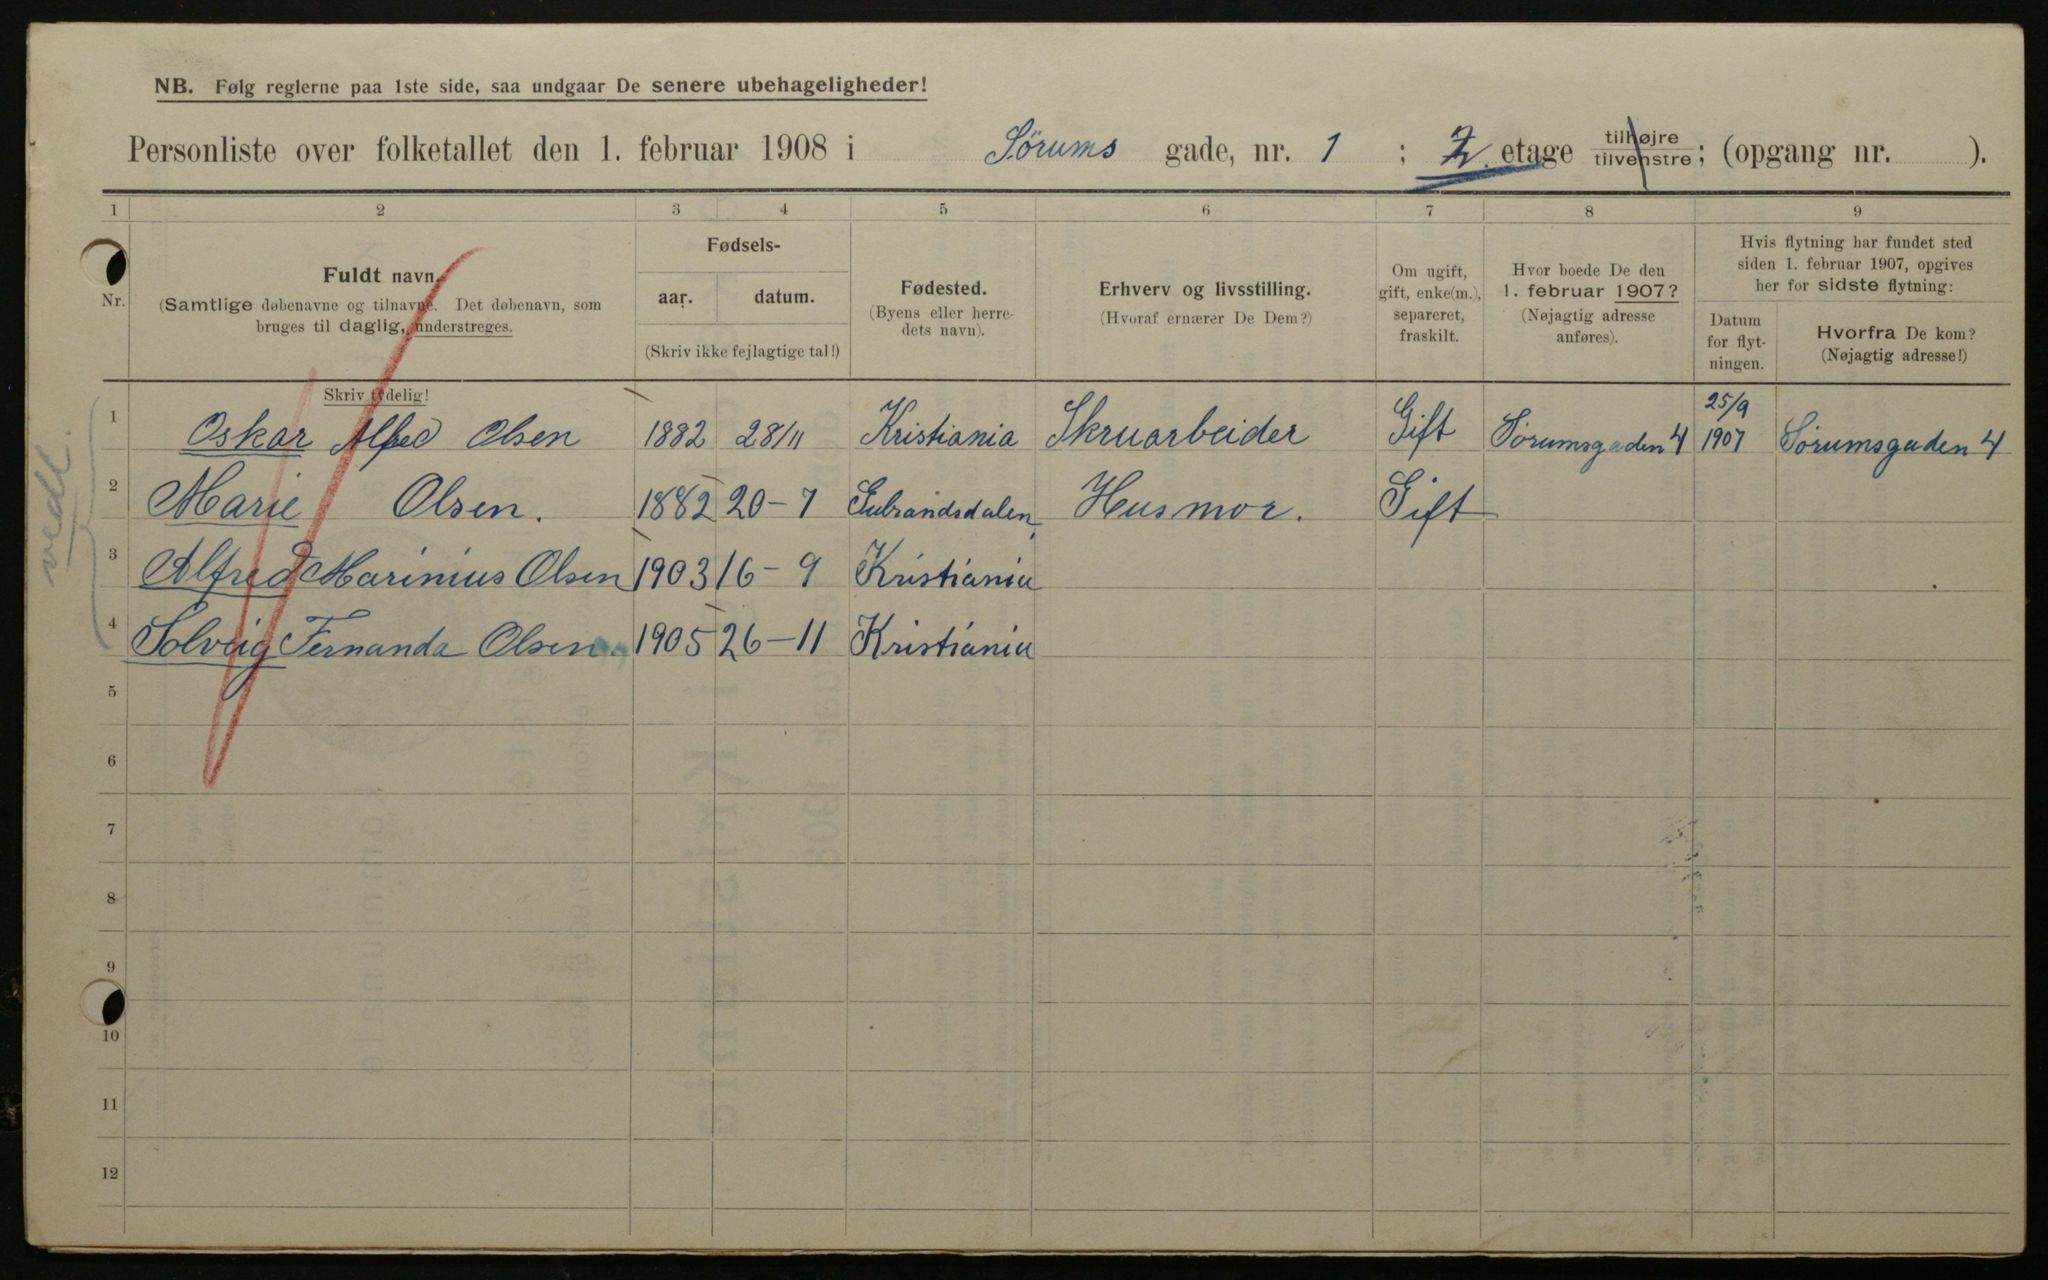 NB. Følg reglerne paa 1ste side, saa undgaar De senere ubehageligheder!
Personliste over folketallet den 1. februar 1908 i Sörums gade, nr. 1 ; 2. etage tilhøjre tilvenstre; (opgang nr. ).
1 2 3 4 5 6 7 8 9
Nr.
Fuldt navn.
(Samtlige døbenavne og tilnavne. Det døbenavn, som
bruges til daglig, understreges.
Skriv tydelig!
Fødsels-
aar. datum.
(Skriv ikke fejlagtige tal!)
Fødested.
(Byens eller herre-
dets navn).
Erhverv og livsstilling.
(Hvoraf ernærer De Dem?)
Om ugift,
gift, enke(m.),
separeret,
fraskilt.
Hvor boede De den
1. februar 1907?
(Nøjagtig adresse
anføres).
Hvis flytning har fundet sted
siden 1. februar 1907, opgives
her for sidste flytning:
Datum
for flyt-
ningen.
Hvorfra De kom?
(Nøjagtig adresse!)
vedl.
1 Oskar Alfred Olsen 1882 28/11 Kristiania Skruarbeider Gift Sörumsgaden 4 25/9 1907 Sörumsgaden 4
2 Marie Olsen. 1882 20-7 Gubrandsdalen Husmor. Gift
3 Alfred Marinius Olsen 1903 16-9 Kristiania
4 Solveig Fernanda Olsen 1905 26-11 Kristiania
5
6
7
8
9
10
11
12